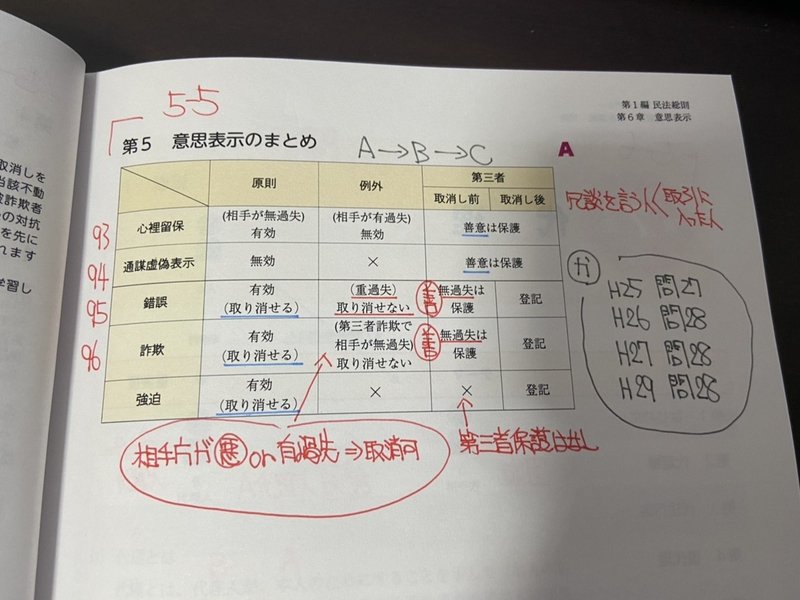 5-5
第1編 民法総則
第6章 意思表示
第5 意思表示のまとめ
A→B→C
A
原則
例外
第三者
取消し前
取消し後
93
心裡留保
(相手が無過失)
有効
(相手が有過失)
無効
善意は保護
94
通謀虚偽表示
無効
×
善意は保護
95
錯誤
有効
(取り消せる)
(重過失)
取り消せない
善
無過失は
保護
登記
96
詐欺
有効
(取り消せる)
(第三者詐欺で
相手が無過失)
取り消せない
善
無過失は
保護
登記
強迫
有効
(取り消せる)
×
×
登記
相手方が悪or有過失⇒取消可
第三者保護は無し
冗談を言う人<取引に
入った人
カ
H25 問27
H26 問28
H27 問28
H29 問28
取消しを
当該不動
被詐欺者
の対抗
を先に
れます
学習し